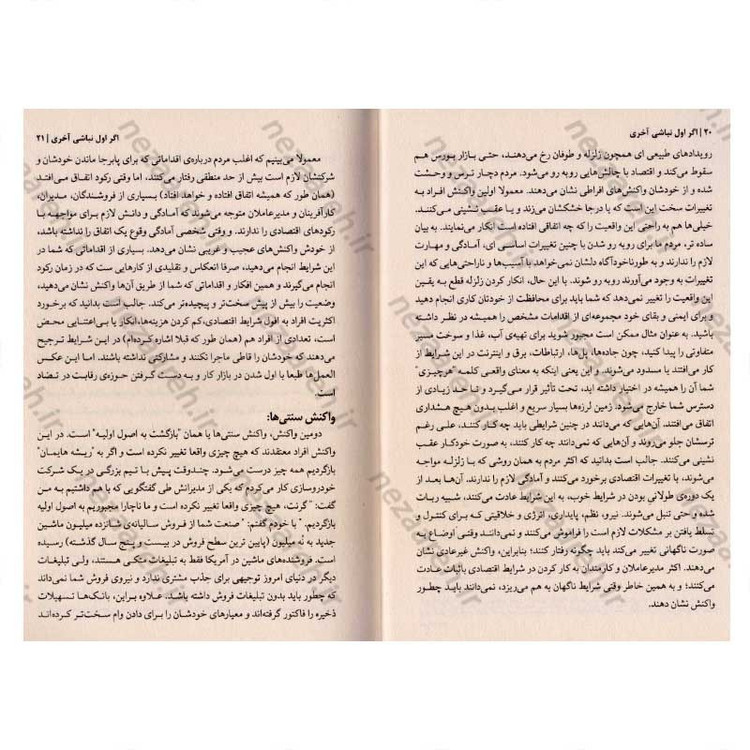 ۲۰ | اگر اول نباشی آخری
رویدادهای طبیعی ای همچون زلزله و طوفان رخ می‌دهند، حتـی بـازار بـورس هـم
سقوط می‌کند و اقتصاد با چالش‌هایی روبه رو می‌شود. مردم دچـار تـرس و وحشـت
شده و از خودشان واکنش‌های افراطی نشان می‌دهند. معمولا اولین واکنش افـراد بـه
تغییرات سخت این است که یا درجا خشکشان می‌زند و یـا عقـب نشـینی می‌کننـد.
خیلی‌ها هم به راحتی این واقعیت را که چه اتفاقی افتاده است انکار می‌نمایند. به بیان
ساده تر، مردم ما برای روبه رو شدن با چنین تغییرات اساسـی ای، آمـادگی و مهـارت
لازم را ندارند و به طورناخودآگاه دلشان نمی‌خواهد با آسیب‌ها و ناراحتی‌هایی که این
تغییرات به وجود می‌آورند روبه رو شوند. با این حال، انکار کردن زلزله قطع به یقـین
این واقعیت را تغییر نمی‌دهد که شما باید برای محافظت از خودتان کاری انجام دهید
و برای ایمنی و بقای خود مجموعه‌ای از اقدامات مشخص را همیشـه در نظـر داشـته
باشید. به عنوان مثال ممکن است مجبور شوید برای تهیه‌ی آب، غذا و سوخت مسیر
متفاوتی را پیدا کنید، چون جاده‌ها، پل‌ها، ارتباطات، برق و اینترنت در این شرایط از
کار می‌افتند یا مسدود می‌شوند. و این یعنی اینکه به معنای واقعـی کلمـه "هرچیـزی"
شما آن را همیشه در اختیار داشته اید، تحت تأثیر قرار می‌گیـرد و تـا حـد زیـادی از
دسترس شما خارج می‌شود. زمین لرزه‌ها بسیار سریع و اغلب بـدون هـیچ هشـداری
اتفاق می‌افتند. آن‌هایی که می‌دانند در چنین شرایطی باید چه کار کنند، علـی رغـم
ترسشان جلو می‌روند و آن‌هایی که نمی‌دانند چه کار کنند، به صورت خودکـار عقـب
نشینی می‌کنند. جالب است بدانید که اکثر مردم به همان روشی که با زلزلـه مواجـه
می‌شوند، با تغییرات اقتصادی برخورد می‌کنند و آمادگی لازم را ندارند. آن‌ها بعـد از
یک دوره‌ی طولانی بودن در شرایط خوب، به این شرایط عادت می‌کنند، شبیه ربـات
شده و حتی تنبل می‌شوند. نیرو، نظم، پایداری، انرژی و خلاقیتی که بـرای کنتـرل و
تسلط یافتن بر مشکلات لازم است را فراموش می‌کنند و نمی‌داننـد وقتـی اوضـاع بـه
صورت ناگهانی تغییر می‌کند باید چگونه رفتار کنند؛ بنابراین، واکنش غیرعادی نشان
می‌دهند. اکثر مدیرعاملان و کارمندان به کار کردن در شرایط اقتصادی باثبات عـادت
می‌کنند؛ و به همین خاطر وقتی شرایط ناگهان به هم می‌ریزد، نمی‌دانند باید چطـور
واکنش نشان دهند.
اگر اول نباشی آخری | ۲۱
معمولا می‌بینیم که اغلب مردم درباره‌ی اقداماتی که برای پابرجا ماندن خودشان و
شرکتشان لازم است بیش از حد منطقی رفتار می‌کنند، اما وقتی رکود اتفـاق می‌افتـد
(همان طور که همیشه اتفاق افتاده و خواهد افتاد) بسیاری از فروشـندگان، مـدیران،
کارآفرینان و مدیرعاملان متوجه می‌شوند که آمادگی و دانش لازم بـرای مواجهـه بـا
رکودهای اقتصادی را ندارند. و وقتی شخصی آمادگی وقوع یک اتفاق را نداشته باشد،
از خودش واکنش‌های عجیب و غریبی نشان می‌دهد. بسیاری از اقداماتی که شما در
این شرایط انجام می‌دهید، صرفا انعکاس و تقلیدی از کارهایی ست که در زمان رکود
انجام می‌گیرند و همین افکار و اقداماتی که شما از طریق آن‌ها واکنش نشان می‌دهید،
وضعیت را بیش از پیش سخت‌تر و پیچیده‌تر می‌کند. جالب است بدانید که برخـورد
اکثریت افراد به افول شرایط اقتصادی،کم کردن هزینه‌ها، انکار یا بـی‌اعتنـایی محـض
است، تعدادی از افراد هم (همان طور که قبلا اشاره کرده‌ام) در این شـرایط تـرجیح
می‌دهند که خودشان را قاطی ماجرا نکنند و مشارکتی نداشته باشند. امـا ایـن عکـس
العمل‌ها طبعا با اول شدن در بازار کار و به دست گرفتن حـوزه‌ی رقابـت در تضـاد
است.
واکنش سنتی‌ها:
دومین واکنش، واکنش سنتی‌ها یا همان "بازگشت به اصول اولیـه" است. در ایـن
واکنش افراد معتقدند که هیچ چیزی واقعا تغییر نکرده است و اگر به "ریشه هایمـان"
بازگردیم همه چیز درست می‌شود. چندوقت پـیش بـا تـیم بزرگـی در یـک شـرکت
خودروسازی کار می‌کردم که یکی از مدیرانش طی گفتگویی کـه بـا هـم داشـتیم بـه مـن
گفت:" گرنت، هیچ چیزی واقعا تغییر نکرده است و ما ناچارا مجبوریم به اصول اولیه
بازگردیم." با خودم گفتم:" صنعت شما از فروش سـالیانه‌ی شـانزده میلیـون ماشـین
جدید به نُه میلیون (پایین ترین سطح فروش در بیسـت و پـنج سـال گذشـته) رسـیده
است. فروشنده‌های ماشین در آمریکا فقط به تبلیغات متکـی هسـتند، ولـی تبلیغـات
دیگر در دنیای امروز توجیهی برای جذب مشتری ندارد و نیروی فروش شما نمی‌داند
که چطور باید بدون تبلیغات فروش داشته باشد. علاوه بـراین، بانک‌هـا تسـهیلات
ذخیره را فاکتور گرفته‌اند و معیارهای خودشان را برای دادن وام سخت‌تر کـرده‌انـد
nezaveh.ir